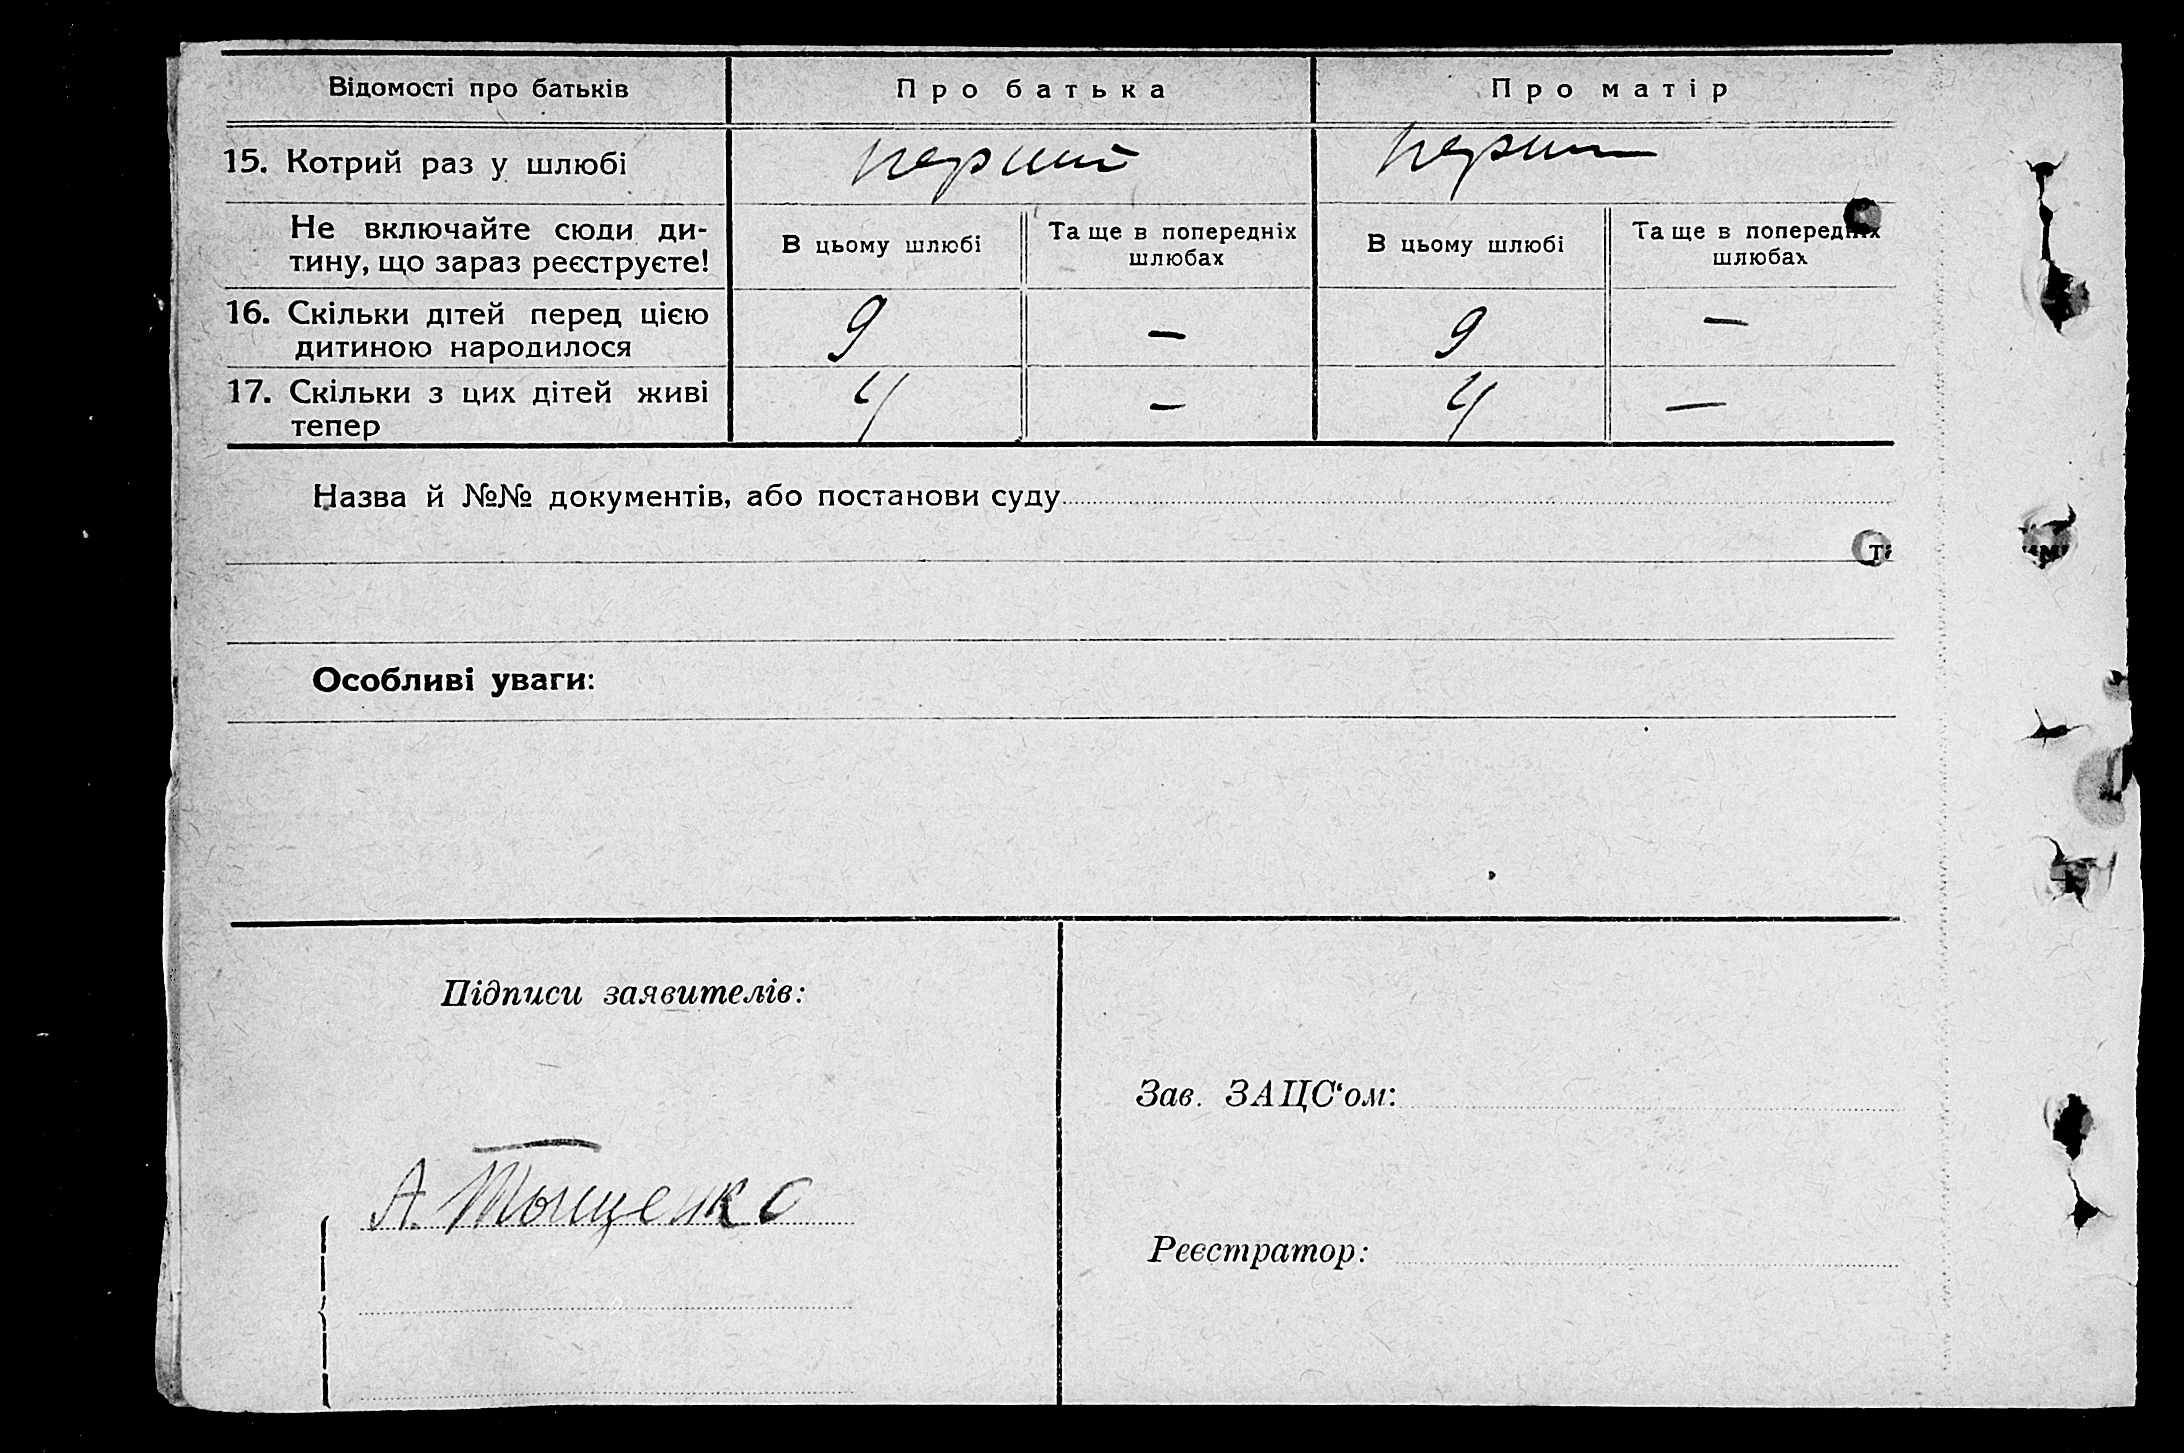 Відомості про батьків
Про батька
Про матір
15. Котрий раз у шлюбі
перший
перши
Не включайте сюди ди-
тину, що зараз реєструєте!
В цьому шлюбі
Та ще в попередніх
шлюбах
В цьому шлюбі
Та ще в попередніх
шлюбах
16. Скільки дітей перед цією
дитиною народилося
9
—
9
—
17. Скільки з цих дітей живі
тепер
4
—
4
—
Назва й №№ документів, або постанови суду
Особливі уваги:
Підписи заявителів:
Зав. ЗАЦС‘ом:
А. Тыщенко
Реєстратор: